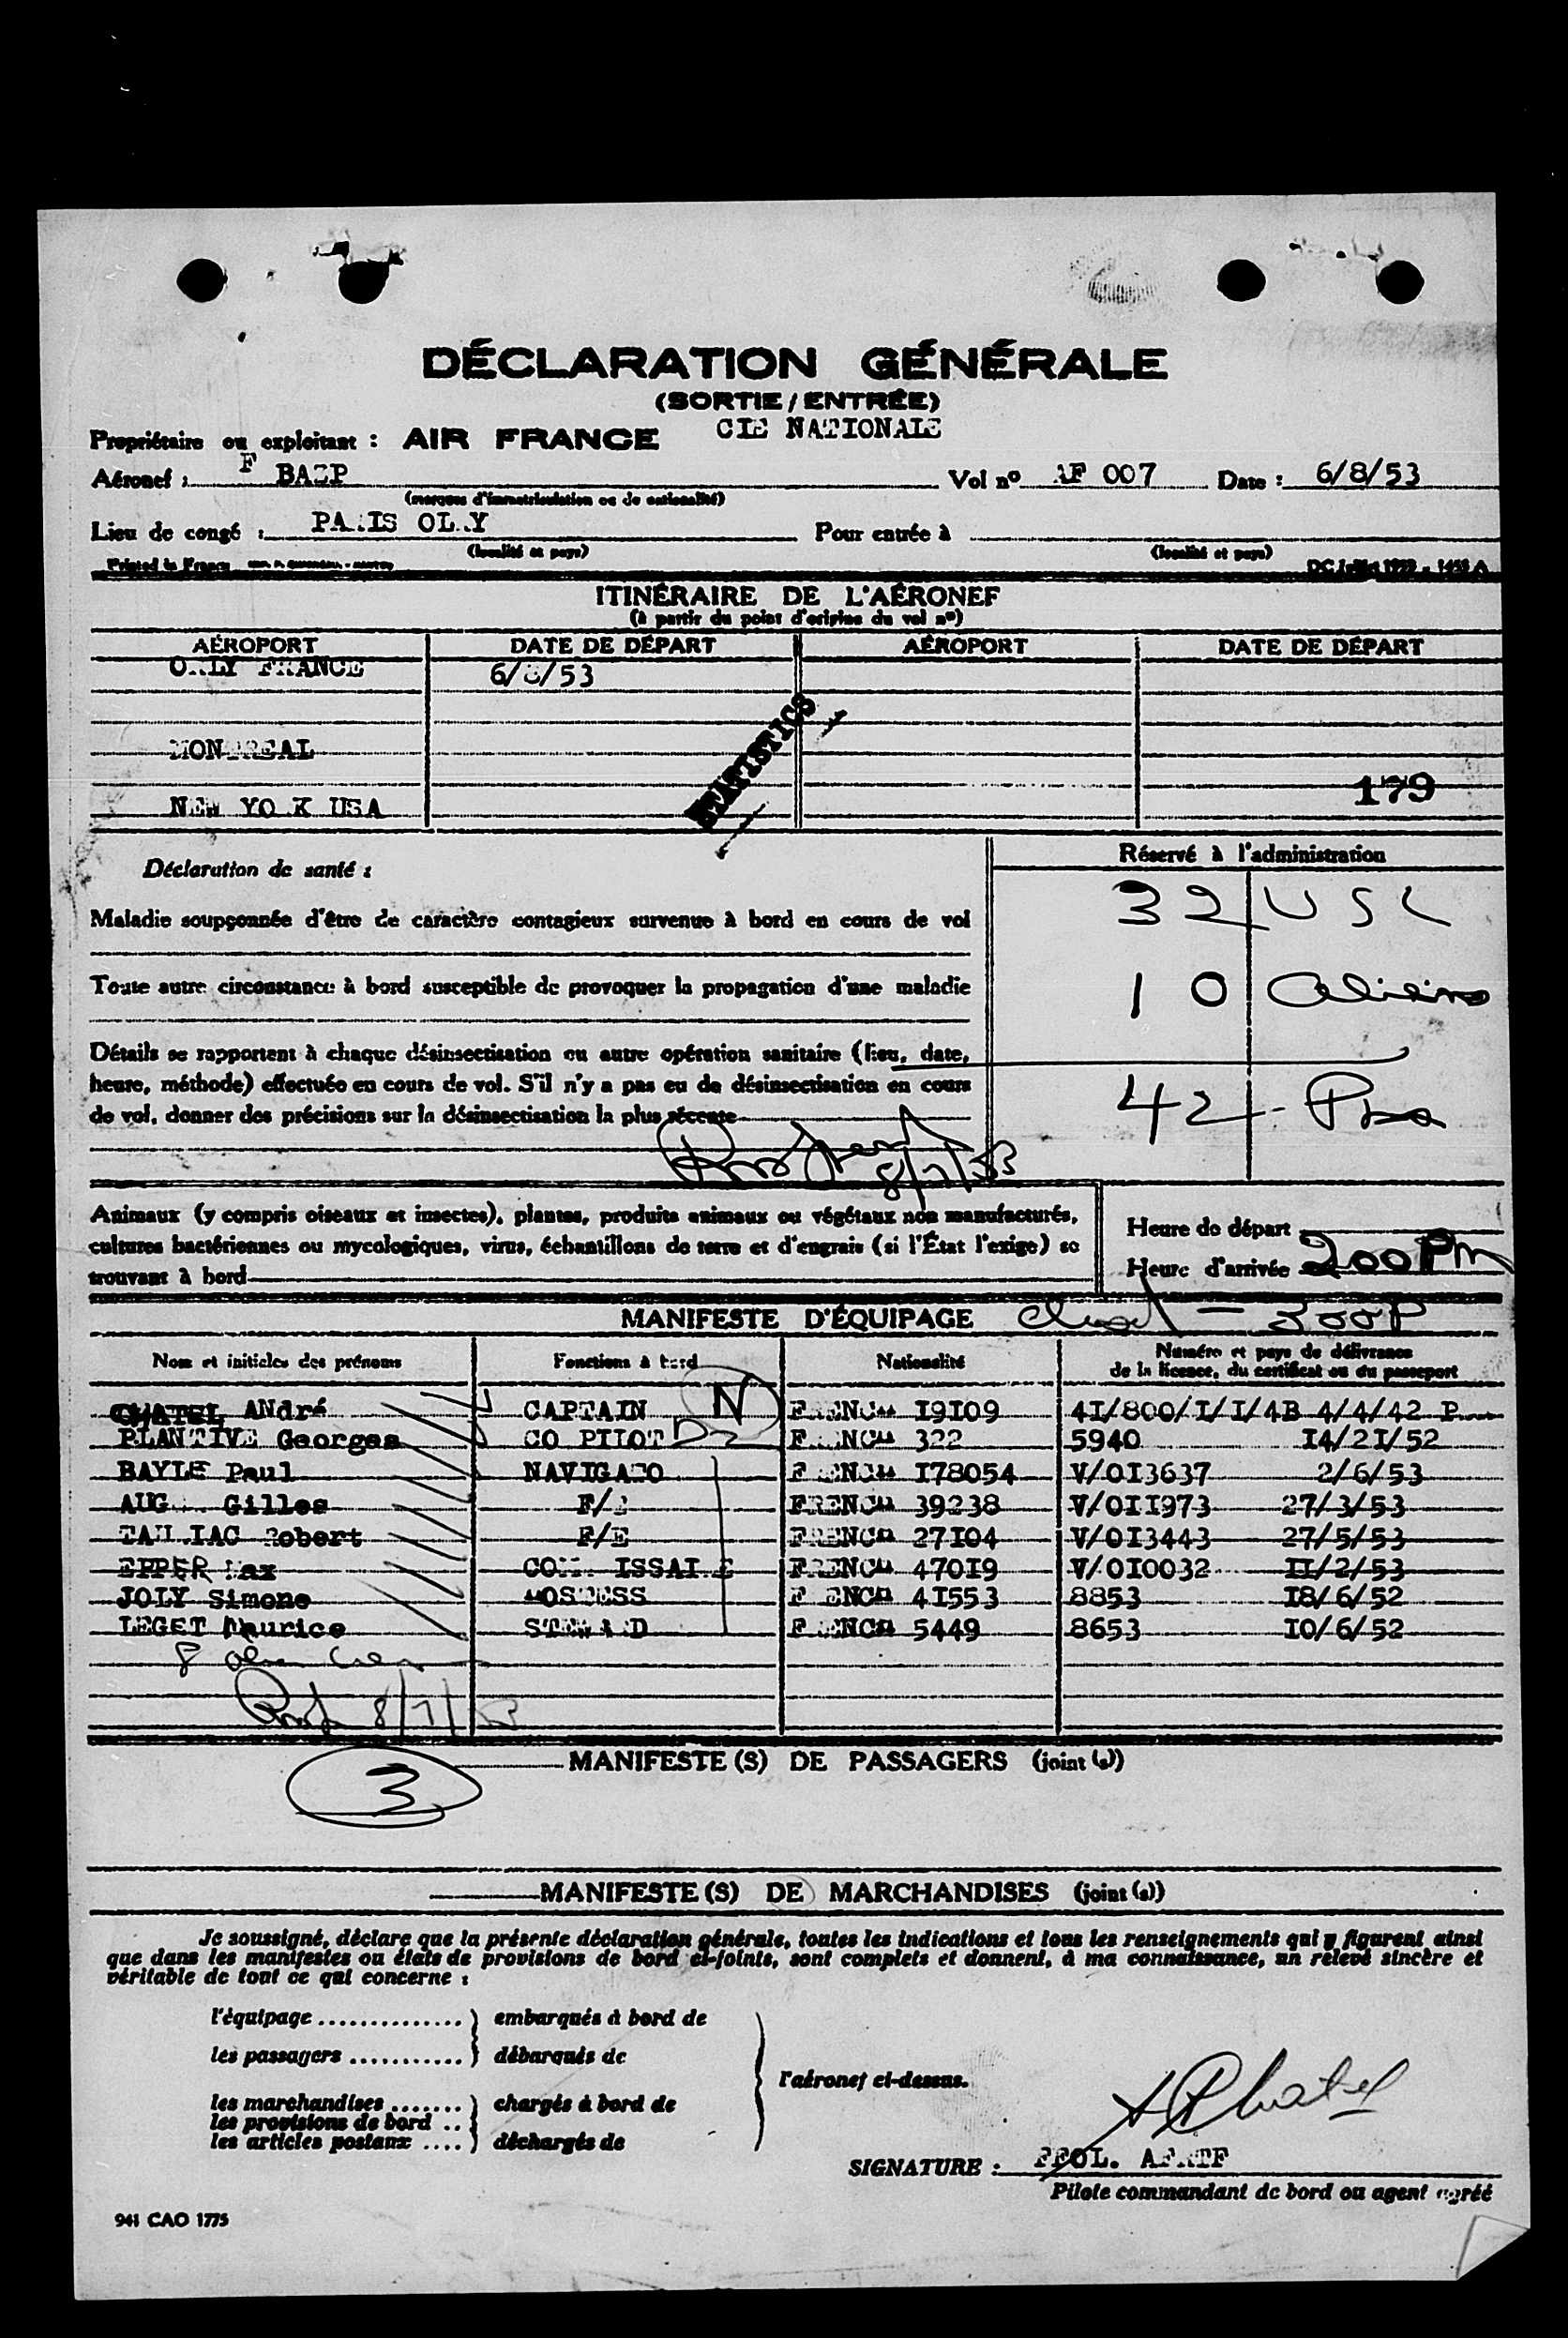 DÉCLARATION GÉNÉRALE
(SORTIE / ENTRÉE)
Propriétaire ou exploitant : AIR FRANCE CIE NATIONALE
Aéronef : F BAZP Vol nº AF 007 Date : 6/8/53
(marques d'immatriculation ou de nationalité)
Lieu de congé : PARIS ORLY Pour entrée à
(localité et pays) (localité et pays)
Printed in France
ITINÉRAIRE DE L'AÉRONEF
(à partir du point d'origine du vol nº)
AÉROPORT DATE DE DÉPART AÉROPORT DATE DE DÉPART
ORLY FRANCE 6/8/53
STATISTICS
MONTREAL
179
NEW YORK USA
Déclaration de santé : Réservé à l'administration
32 USC
Maladie soupçonnée d'être de caractère contagieux survenue à bord en cours de vol
Toute autre circonstance à bord susceptible de provoquer la propagation d'une maladie
10 Aliens
Détails se rapportent à chaque désinsectisation ou autre opération sanitaire (lieu, date,
heure, méthode) effectuée en cours de vol. S'il n'y a pas eu de désinsectisation en cours
de vol, donner des précisions sur la désinsectisation la plus récente
42 -
8/7/53
Animaux (y compris oiseaux et insectes), plantes, produits animaux ou végétaux non manufacturés,
cultures bactériennes ou mycologiques, virus, échantillons de terre et d'engrais (si l'État l'exige) se
trouvant à bord
Heure de départ
Heure d'arrivée 200 PM
MANIFESTE D'ÉQUIPAGE - 300P
Nom et initiales des prénoms Fonctions à bord Nationalité Numéro et pays de délivrance
de la licence, du certificat ou du passeport
CHATEL ANdré CAPTAIN N FRENCH I9I09 4I/800/I/I/4B 4/4/42
PLANTIVE Georges CO PILOT FRENCH 322 5940 I4/2I/52
BAYLE Paul NAVIGATO FRENCH I78054 V/0I3637 2/6/53
Gilles FRENCH 39238 V/0II973 27/3/53
Robert F/E FRENCH 27I04 V/0I3443 27/5/53
EPPER Max FRENCH 470I9 V/0I0032 II/2/53
JOLY Simone HOSTESS FRENCH 4I553 8853 I8/6/52
LEGET Maurice STEWARD FRENCH 5449 8653 I0/6/52
8
8/7/53
MANIFESTE (S) DE PASSAGERS (joint (s))
3
MANIFESTE (S) DE MARCHANDISES (joint (s))
Je soussigné, déclare que la présente déclaration générale, toutes les indications et tous les renseignements qui y figurent ainsi
que dans les manifestes ou états de provisions de bord ci-joints, sont complets et donnent, à ma connaissance, un relevé sincère et
véritable de tout ce qui concerne :
l'équipage .............. ) embarqués à bord de
les passagers ........... ) débarqués de
l'aéronef ci-dessus.
les marchandises ....... ) chargés à bord de
les provisions de bord ..
les articles postaux .... ) déchargés de
A Chatel
SIGNATURE :
Pilote commandant de bord ou agent agréé
941 CAO 1775